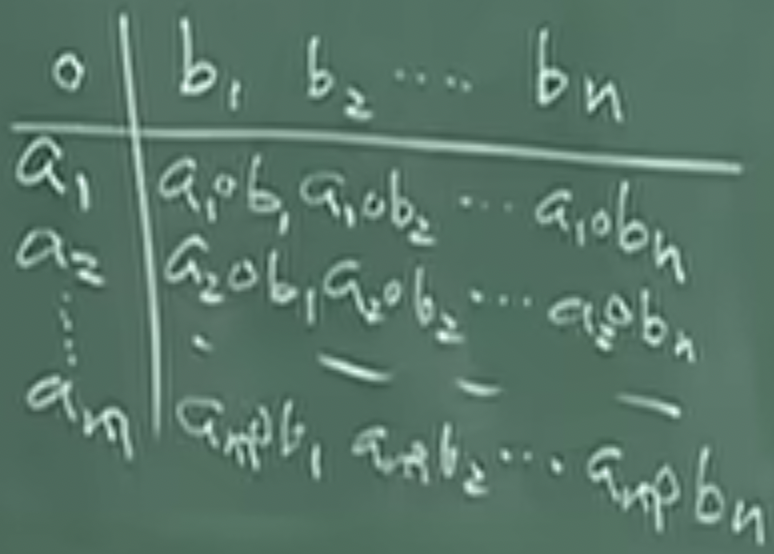 ∘ b₁ b₂ ···· bₙ
a₁ a₁∘b₁ a₁∘b₂ ··· a₁∘bₙ
a₂ a₂∘b₁ a₂∘b₂ ··· a₂∘bₙ
⋮ · — — —
aₘ aₘ∘b₁ aₘ∘b₂ ··· aₘ∘bₙ